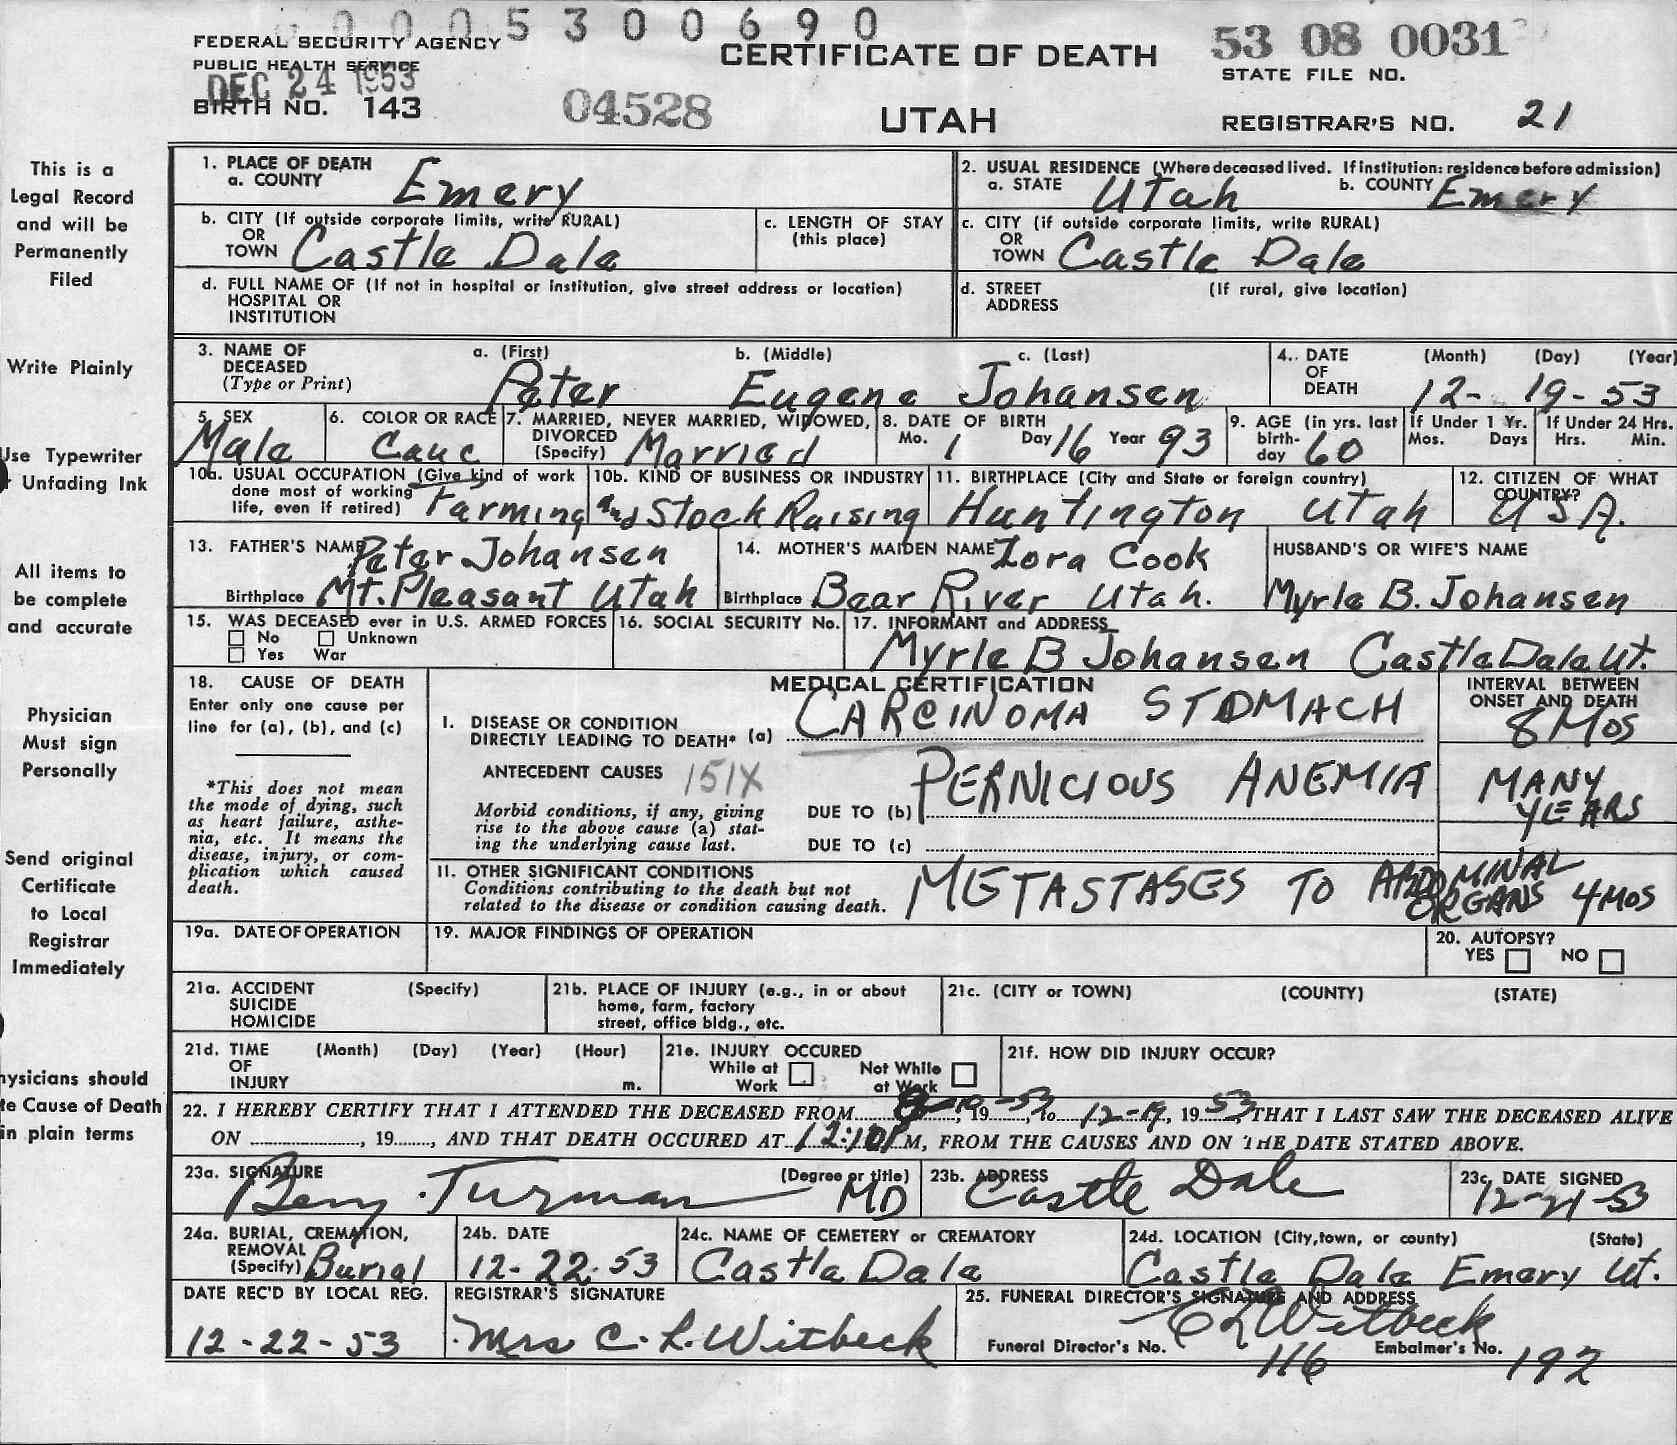 0 0 0 5 3 0 0 6 9 0
FEDERAL SECURITY AGENCY
PUBLIC HEALTH SERVICE
DEC 24 1953
BIRTH NO. 143
04528
CERTIFICATE OF DEATH
UTAH
53 08 0031
STATE FILE NO.
REGISTRAR'S NO. 21
This is a
Legal Record
and will be
Permanently
Filed
Write Plainly
Use Typewriter
Unfading Ink
All items to
be complete
and accurate
Physician
Must sign
Personally
Send original
Certificate
to Local
Registrar
Immediately
hysicians should
te Cause of Death
in plain terms
1. PLACE OF DEATH
a. COUNTY Emery
2. USUAL RESIDENCE (Where deceased lived. If institution: residence before admission)
a. STATE Utah b. COUNTY Emery
b. CITY (If outside corporate limits, write RURAL)
OR
TOWN Castle Dale
c. LENGTH OF STAY
(this place)
c. CITY (if outside corporate limits, write RURAL)
OR
TOWN Castle Dale
d. FULL NAME OF (If not in hospital or institution, give street address or location)
HOSPITAL OR
INSTITUTION
d. STREET (If rural, give location)
ADDRESS
3. NAME OF a. (First) b. (Middle) c. (Last)
DECEASED
(Type or Print) Peter Eugene Johansen
4. DATE (Month) (Day) (Year)
OF
DEATH 12- 19-53
5. SEX
Male
6. COLOR OR RACE
Cauc
7. MARRIED, NEVER MARRIED, WIDOWED,
DIVORCED
(Specify) Married
8. DATE OF BIRTH
Mo. 1 Day 16 Year 93
9. AGE (in yrs. last
birth-
day 60
If Under 1 Yr.
Mos. Days
If Under 24 Hrs.
Hrs. Min.
10a. USUAL OCCUPATION (Give kind of work
done most of working
life, even if retired) Farming
10b. KIND OF BUSINESS OR INDUSTRY
and Stock Raising
11. BIRTHPLACE (City and State or foreign country)
Huntington Utah
12. CITIZEN OF WHAT
COUNTRY?
USA.
13. FATHER'S NAME Peter Johansen
Birthplace Mt. Pleasant Utah
14. MOTHER'S MAIDEN NAME Zora Cook
Birthplace Bear River Utah.
HUSBAND'S OR WIFE'S NAME
Myrle B. Johansen
15. WAS DECEASED ever in U.S. ARMED FORCES
No Unknown
Yes War
16. SOCIAL SECURITY No.
17. INFORMANT and ADDRESS
Myrle B Johansen Castle Dale Ut.
18. CAUSE OF DEATH
Enter only one cause per
line for (a), (b), and (c)
*This does not mean
the mode of dying, such
as heart failure, asthe-
nia, etc. It means the
disease, injury, or com-
plication which caused
death.
MEDICAL CERTIFICATION
INTERVAL BETWEEN
ONSET AND DEATH
I. DISEASE OR CONDITION
DIRECTLY LEADING TO DEATH* (a) CARCINOMA STOMACH 8 MOS
ANTECEDENT CAUSES 151X
Morbid conditions, if any, giving
rise to the above cause (a) stat-
ing the underlying cause last.
DUE TO (b) PERNICIOUS ANEMIA MANY YEARS
DUE TO (c)
11. OTHER SIGNIFICANT CONDITIONS
Conditions contributing to the death but not
related to the disease or condition causing death.
METASTASES TO ABDOMINAL ORGANS 4 MOS
19a. DATE OF OPERATION
19. MAJOR FINDINGS OF OPERATION
20. AUTOPSY?
YES NO
21a. ACCIDENT (Specify)
SUICIDE
HOMICIDE
21b. PLACE OF INJURY (e.g., in or about
home, farm, factory
street, office bldg., etc.
21c. (CITY or TOWN) (COUNTY) (STATE)
21d. TIME (Month) (Day) (Year) (Hour)
OF
INJURY m.
21e. INJURY OCCURED
While at Work Not While at Work
21f. HOW DID INJURY OCCUR?
22. I HEREBY CERTIFY THAT I ATTENDED THE DECEASED FROM 10, 19 53, to 12-19, 19 53, THAT I LAST SAW THE DECEASED ALIVE
ON ............, 19......, AND THAT DEATH OCCURED AT 12:10 P M, FROM THE CAUSES AND ON THE DATE STATED ABOVE.
23a. SIGNATURE (Degree or title)
Turman MD
23b. ADDRESS
Castle Dale
23c. DATE SIGNED
12-21-53
24a. BURIAL, CREMATION,
REMOVAL
(Specify) Burial
24b. DATE
12-22-53
24c. NAME OF CEMETERY or CREMATORY
Castle Dale
24d. LOCATION (City, town, or county) (State)
Castle Dale Emery Ut.
DATE REC'D BY LOCAL REG.
12-22-53
REGISTRAR'S SIGNATURE
Mrs C. L. Witbeck
25. FUNERAL DIRECTOR'S SIGNATURE AND ADDRESS
C L Witbeck
Funeral Director's No. 116 Embalmer's No. 192